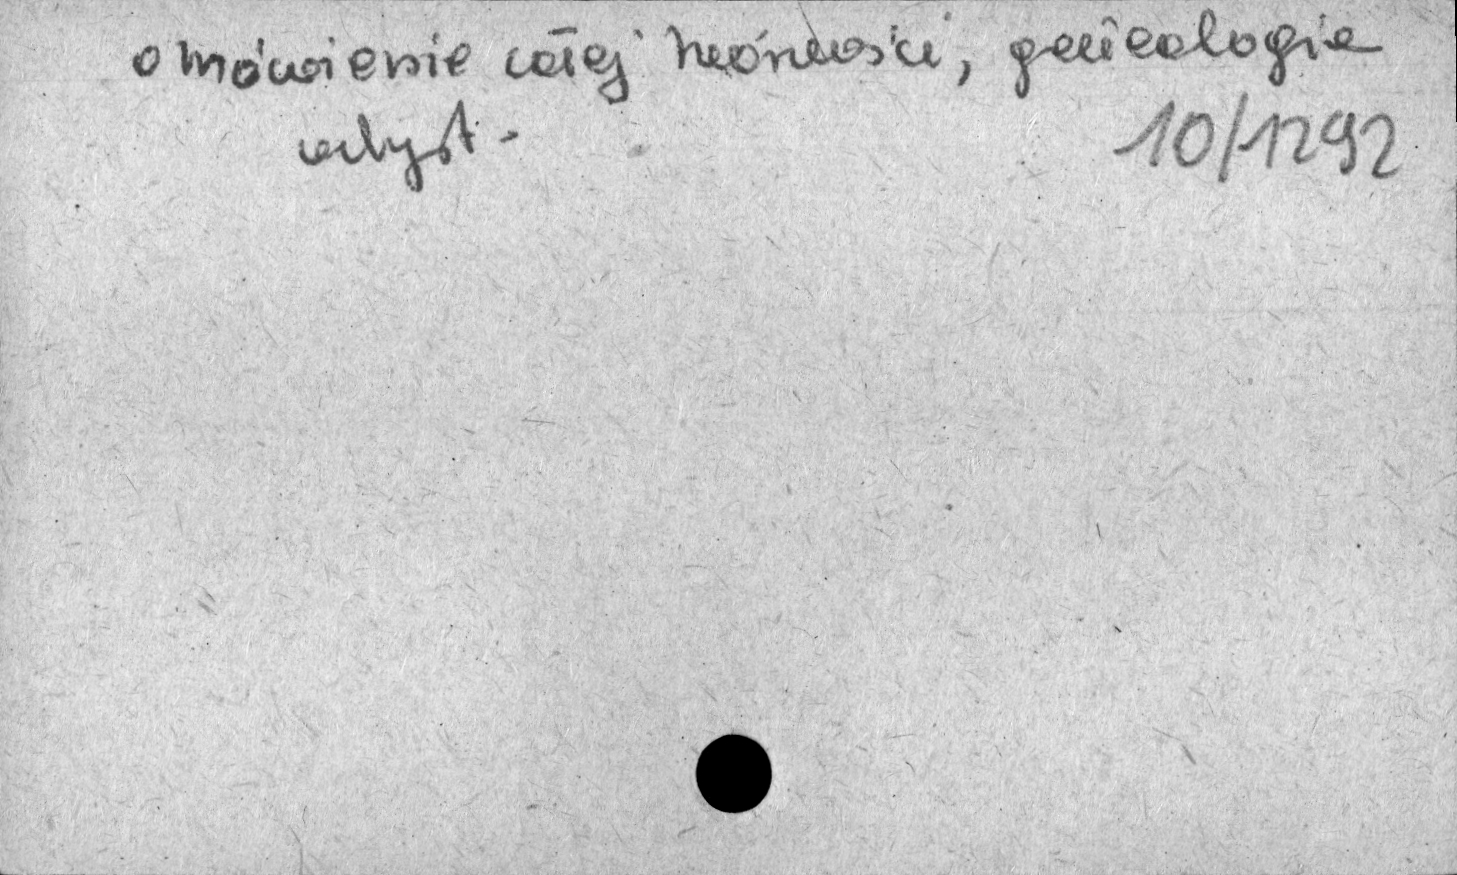 omówienie całej twórczości, genealogia
artyst. 10/1292